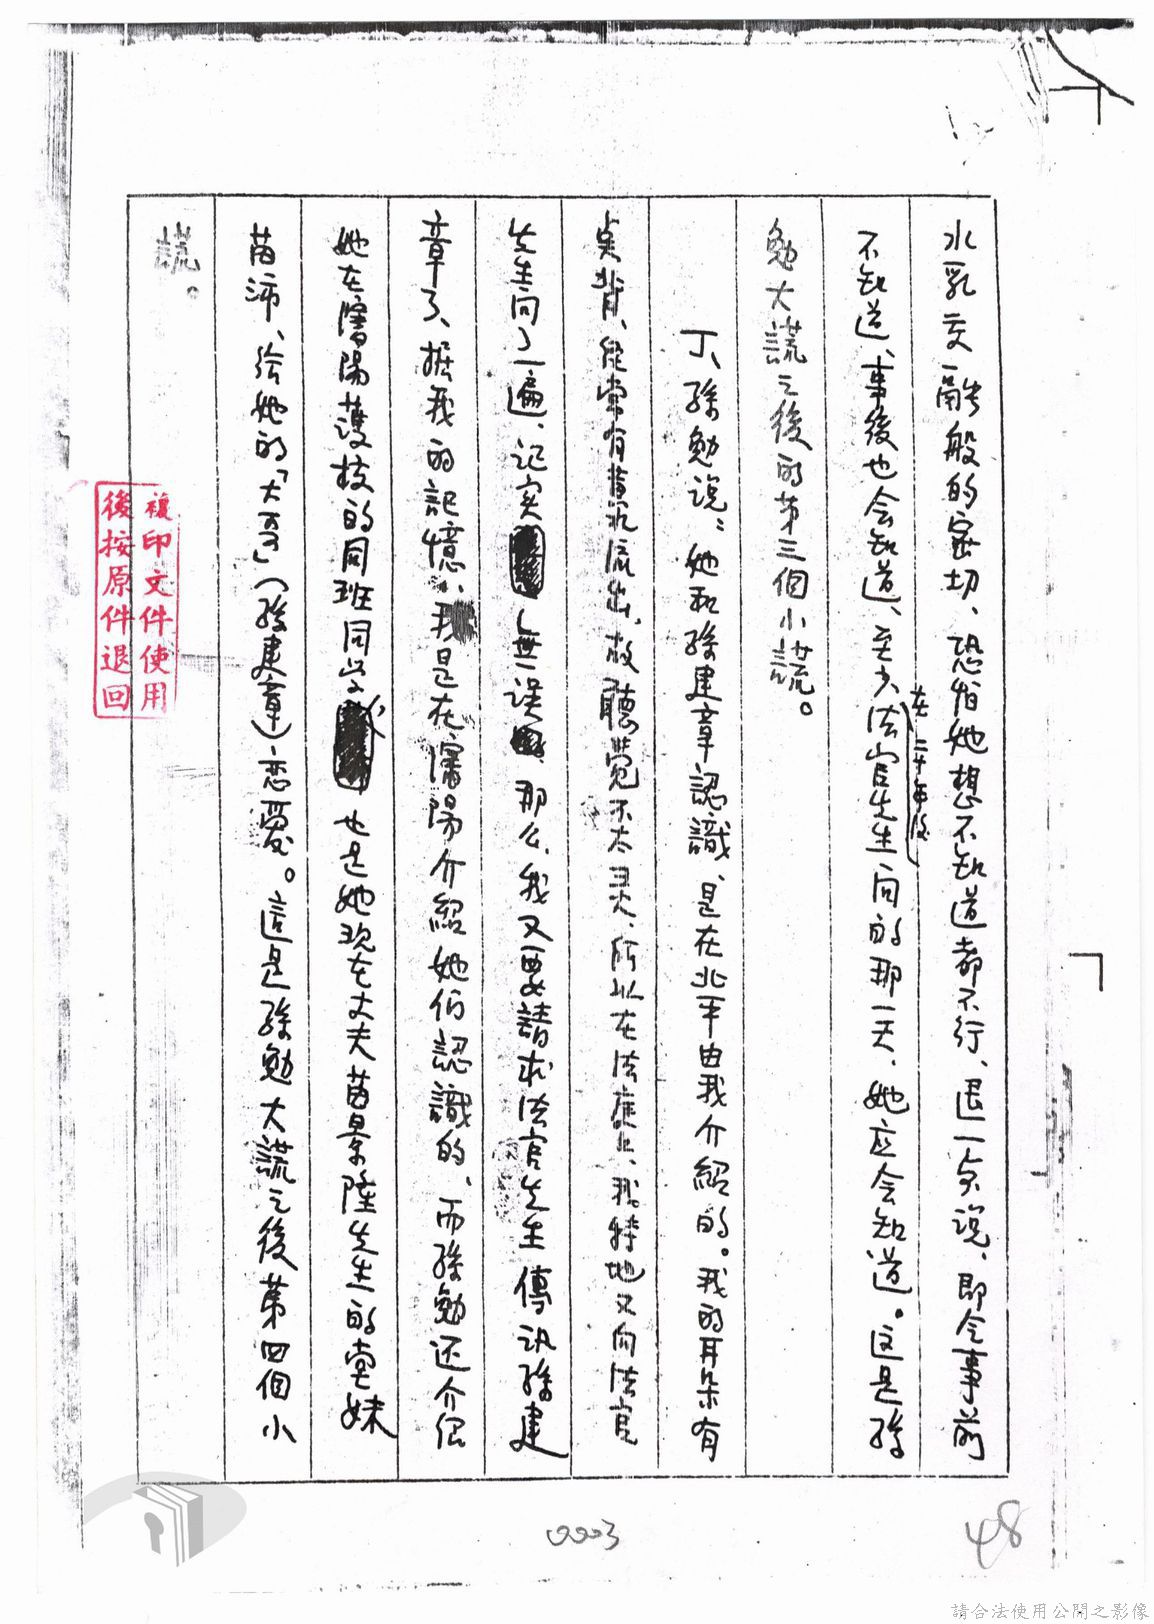 水乳交融般的密切、恐怕她想不知道都不行、退一步说、即令事前
不知道、事後也会知道、至少
在二十年後
法官先生问的那一天、她应会知道。这是孫
勉大謊之後的第三個小謊。
丁、孫勉说：她和孫建章認識、是在北平由我介紹的。我的耳朵有
点背、經常有黄水流出、故聽覺不太灵、所以在法庭上、我特地又向法官
先生问了一遍、记实無误、那么、我又要請求法官先生傳訊孫建
章了、据我的記憶、是在瀋陽介紹她们認識的、而孫勉还介绍
她在瀋陽護校的同班同学也是她现在丈夫苗景隆先生的堂妹
苗沛、给她的「大哥」（孫建章）恋爱。這是孫勉大謊之後第四個小
謊。
複印文件使用
後按原件退回
0003
48
請合法使用公開之影像